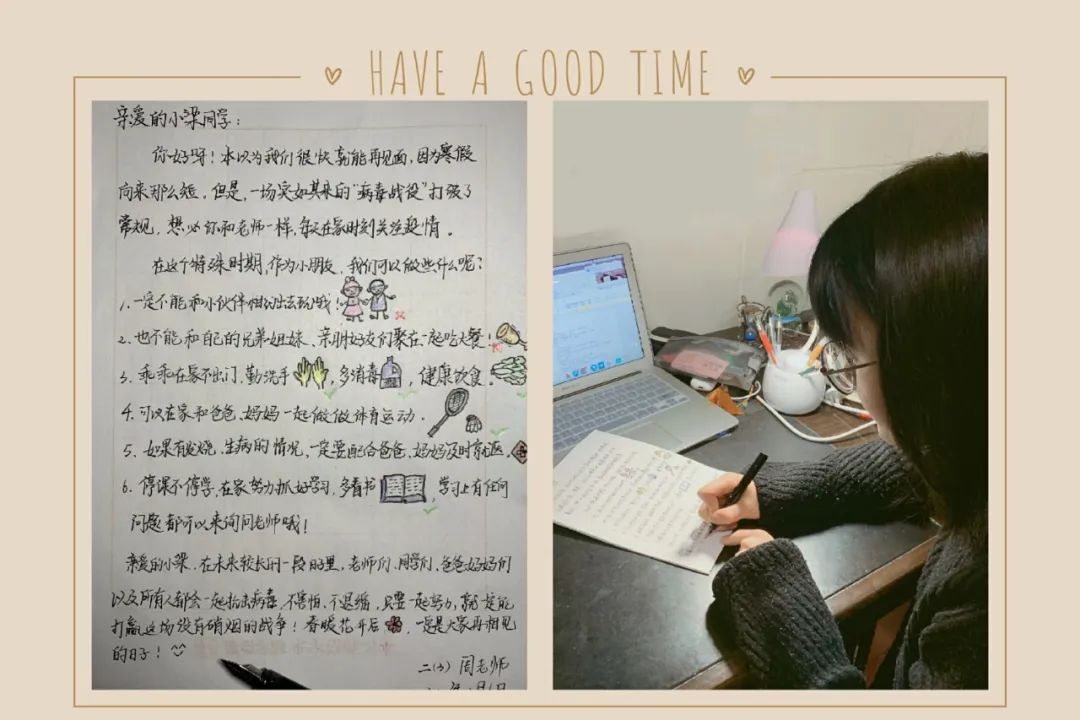 HAVE A GOOD TIME
亲爱的小梁同学:
你好呀!本以为我们很快就能再见面,因为寒假
向来那么短,但是,一场突如其来的“病毒战役”打破了
常规,想必你和老师一样,每天在家时刻关注疫情。
在这个特殊时期,作为小朋友,我们可以做些什么呢?
1.一定不能和小伙伴相约出去玩哦!
2.也不能和自己的兄弟姐妹、亲朋好友们聚在一起吃大餐!
3.乖乖在家不出门,勤洗手,多消毒,健康饮食。
4.可以在家和爸爸、妈妈一起做做体育运动。
5.如果有发烧、生病的情况,一定要配合爸爸、妈妈及时就医。
6.停课不停学,在家努力抓好学习,多看书,学习上有任何
问题都可以来询问老师哦!
亲爱的小梁,在未来较长的一段时间里,老师们、同学们、爸爸妈妈们
以及所有人都会一起抗击病毒,不害怕,不退缩,只要一起努力,就一定能
打赢这场没有硝烟的战争!春暖花开后,一定是大家再相见
的日子!
二(3)周老师